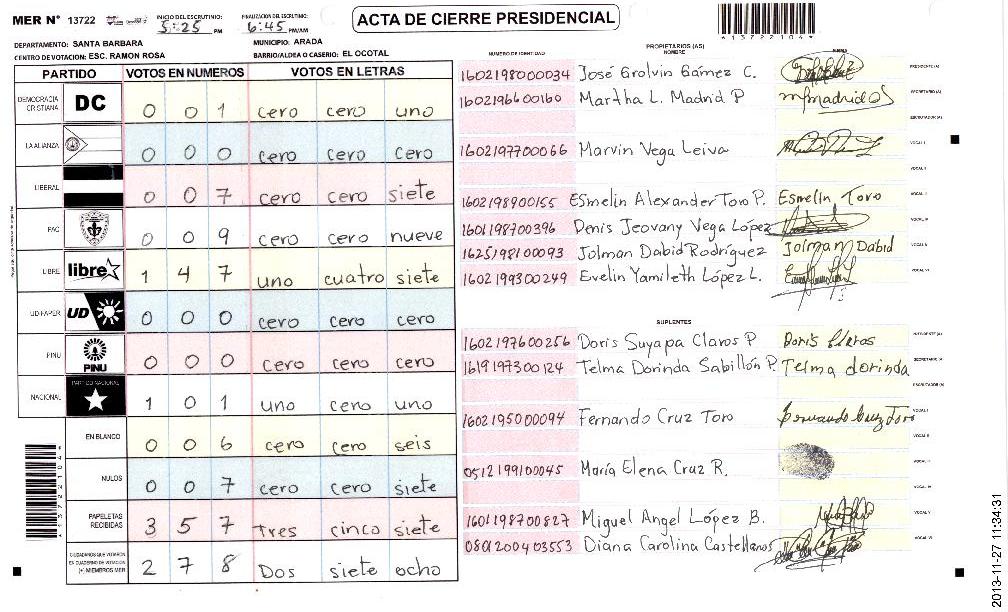 MER N° 13722
INICIO DEL ESCRUTINIO: 5:25 PM
FINALIZACION DEL ESCRUTINIO: 6:45 PM/AM
ACTA DE CIERRE PRESIDENCIAL
*13722104*
DEPARTAMENTO: SANTA BARBARA
MUNICIPIO: ARADA
CENTRO DE VOTACION: ESC. RAMON ROSA
BARRIO/ALDEA O CASERIO: EL OCOTAL
PARTIDO VOTOS EN NUMEROS VOTOS EN LETRAS
DEMOCRACIA CRISTIANA DC 0 0 1 cero cero uno
LA ALIANZA 0 0 0 cero cero cero
LIBERAL 0 0 7 cero cero siete
PAC 0 0 9 cero cero nueve
LIBRE libre 1 4 7 uno cuatro siete
UD-FAPER UD 0 0 0 cero cero cero
PINU PINU 0 0 0 cero cero cero
NACIONAL PARTIDO NACIONAL 1 0 1 uno cero uno
EN BLANCO 0 0 6 cero cero seis
NULOS 0 0 7 cero cero siete
PAPELETAS RECIBIDAS 3 5 7 Tres cinco siete
CIUDADANOS QUE VOTARON EN CUADERNO DE VOTACION (+) MIEMBROS MER 2 7 8 Dos siete ocho
PROPIETARIOS (AS)
NUMERO DE IDENTIDAD NOMBRE FIRMA
1602198000034 José Grolvin Gámez C. PRESIDENTE (A)
1602196600160 Martha L. Madrid P mfmadrid SECRETARIO (A)
ESCRUTADOR (A)
1602197700066 Marvin Vega Leiva VOCAL I
VOCAL II
1602198900155 Esmelin Alexander Toro P. Esmelin Toro
1601198700396 Denis Jeovany Vega López
1625198100093 Jolman Dabid Rodríguez Jolman Dabid
1602199300249 Evelin Yamileth López L. VOCAL VI
SUPLENTES
1602197600256 Doris Suyapa Claros P Doris Claros
1619197300124 Telma Dorinda Sabillón P. Telma dorinda SECRETARIO (A)
ESCRUTADOR (A)
1602195000094 Fernando Cruz Toro Fernando Cruz Toro VOCAL I
VOCAL II
0512199100045 María Elena Cruz R.
VOCAL IV
1601198700827 Miguel Angel López B. VOCAL V
0801200403553 Diana Carolina Castellanos VOCAL VI
2013-11-27 11:34:31